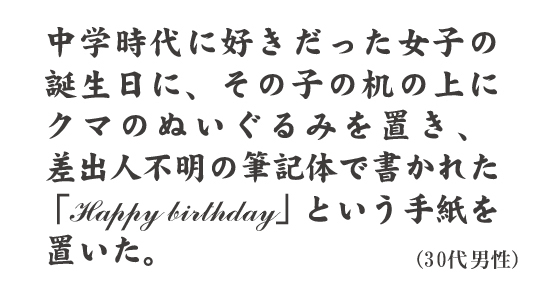 中学時代に好きだった女子の
誕生日に、その子の机の上に
クマのぬいぐるみを置き、
差出人不明の筆記体で書かれた
「Happy birthday」という手紙を
置いた。
(30代男性)